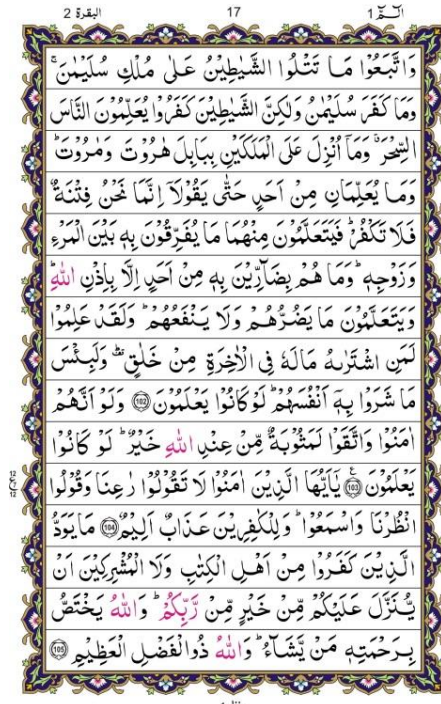 البقرة 2 17 الٓمّٓ 1
وَاتَّبَعُوْا مَا تَتْلُوا الشَّيٰطِيْنُ عَلٰى مُلْكِ سُلَيْمٰنَ ۚ
وَمَا كَفَرَ سُلَيْمٰنُ وَلٰكِنَّ الشَّيٰطِيْنَ كَفَرُوْا يُعَلِّمُوْنَ النَّاسَ
السِّحْرَ ۗ وَمَآ اُنْزِلَ عَلَى الْمَلَكَيْنِ بِبَابِلَ هَارُوْتَ وَمَارُوْتَ ؕ
وَمَا يُعَلِّمٰنِ مِنْ اَحَدٍ حَتّٰى يَقُوْلَاۤ اِنَّمَا نَحْنُ فِتْنَةٌ
فَلَا تَكْفُرْ ؕ فَيَتَعَلَّمُوْنَ مِنْهُمَا مَا يُفَرِّقُوْنَ بِهٖ بَيْنَ الْمَرْءِ
وَزَوْجِهٖ ؕ وَمَا هُمْ بِضَآرِّيْنَ بِهٖ مِنْ اَحَدٍ اِلَّا بِاِذْنِ اللّٰهِ ؕ
وَيَتَعَلَّمُوْنَ مَا يَضُرُّهُمْ وَلَا يَنْفَعُهُمْ ؕ وَلَقَدْ عَلِمُوْا
لَمَنِ اشْتَرٰىهُ مَا لَهٗ فِى الْاٰخِرَةِ مِنْ خَلَاقٍ ؕ وَلَبِئْسَ
مَا شَرَوْا بِهٖۤ اَنْفُسَهُمْ ؕ لَوْ كَانُوْا يَعْلَمُوْنَ 102 وَلَوْ اَنَّهُمْ
اٰمَنُوْا وَاتَّقَوْا لَمَثُوْبَةٌ مِّنْ عِنْدِ اللّٰهِ خَيْرٌ ؕ لَوْ كَانُوْا
يَعْلَمُوْنَ 103 يٰٓاَيُّهَا الَّذِيْنَ اٰمَنُوْا لَا تَقُوْلُوْا رَاعِنَا وَقُوْلُوا
انْظُرْنَا وَاسْمَعُوْا ؕ وَلِلْكٰفِرِيْنَ عَذَابٌ اَلِيْمٌ 104 مَا يَوَدُّ
الَّذِيْنَ كَفَرُوْا مِنْ اَهْلِ الْكِتٰبِ وَلَا الْمُشْرِكِيْنَ اَنْ
يُّنَزَّلَ عَلَيْكُمْ مِّنْ خَيْرٍ مِّنْ رَّبِّكُمْ ؕ وَاللّٰهُ يَخْتَصُّ
بِرَحْمَتِهٖ مَنْ يَّشَآءُ ؕ وَاللّٰهُ ذُو الْفَضْلِ الْعَظِيْمِ 105